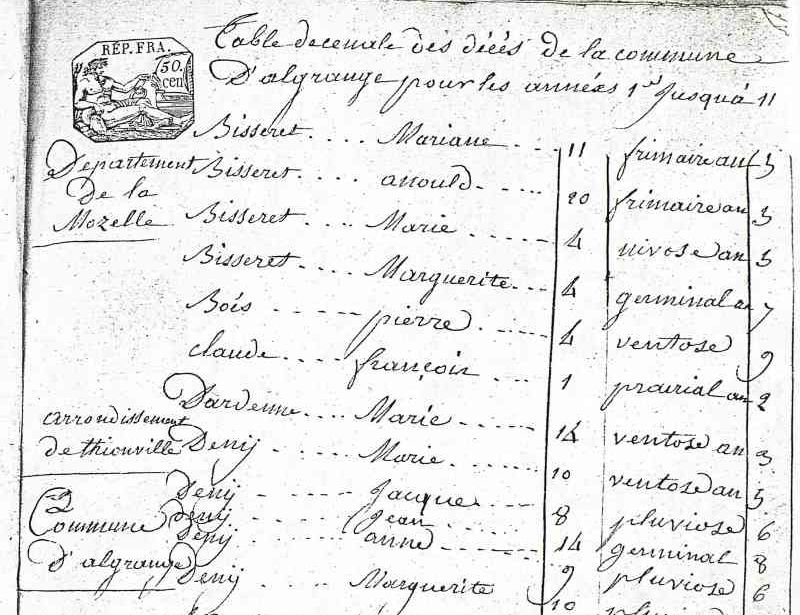 RÉP. FRA.
50.
cen
Table decenale des décés de la commune
D'algrange pour les années 1er jusquá 11
Departement
De la
Mozelle
Bisseret .... Mariane ... 11 frimaire an 3
Bisseret .... anould ... 20 frimaire an 3
Bisseret .... Marie ..... 4 nivose an 5
Bisseret .... Marguerite ... 4 germinal an 7
Bois .... pierre .... 4 ventose 9
claude .... françois ... 1 prairial an 2
Dardenne .... Marie .... 14 ventose an 3
arrondissement
de thionville
Denij .... Marie .... 10 ventose an 5
Denij .... Jacque .... 8 pluviose 6
denij .... Jean .... 14 germinal 8
Denij .... anne .... 9 pluviose 6
Commune
d'algrange
Denij .... Marguerite 10